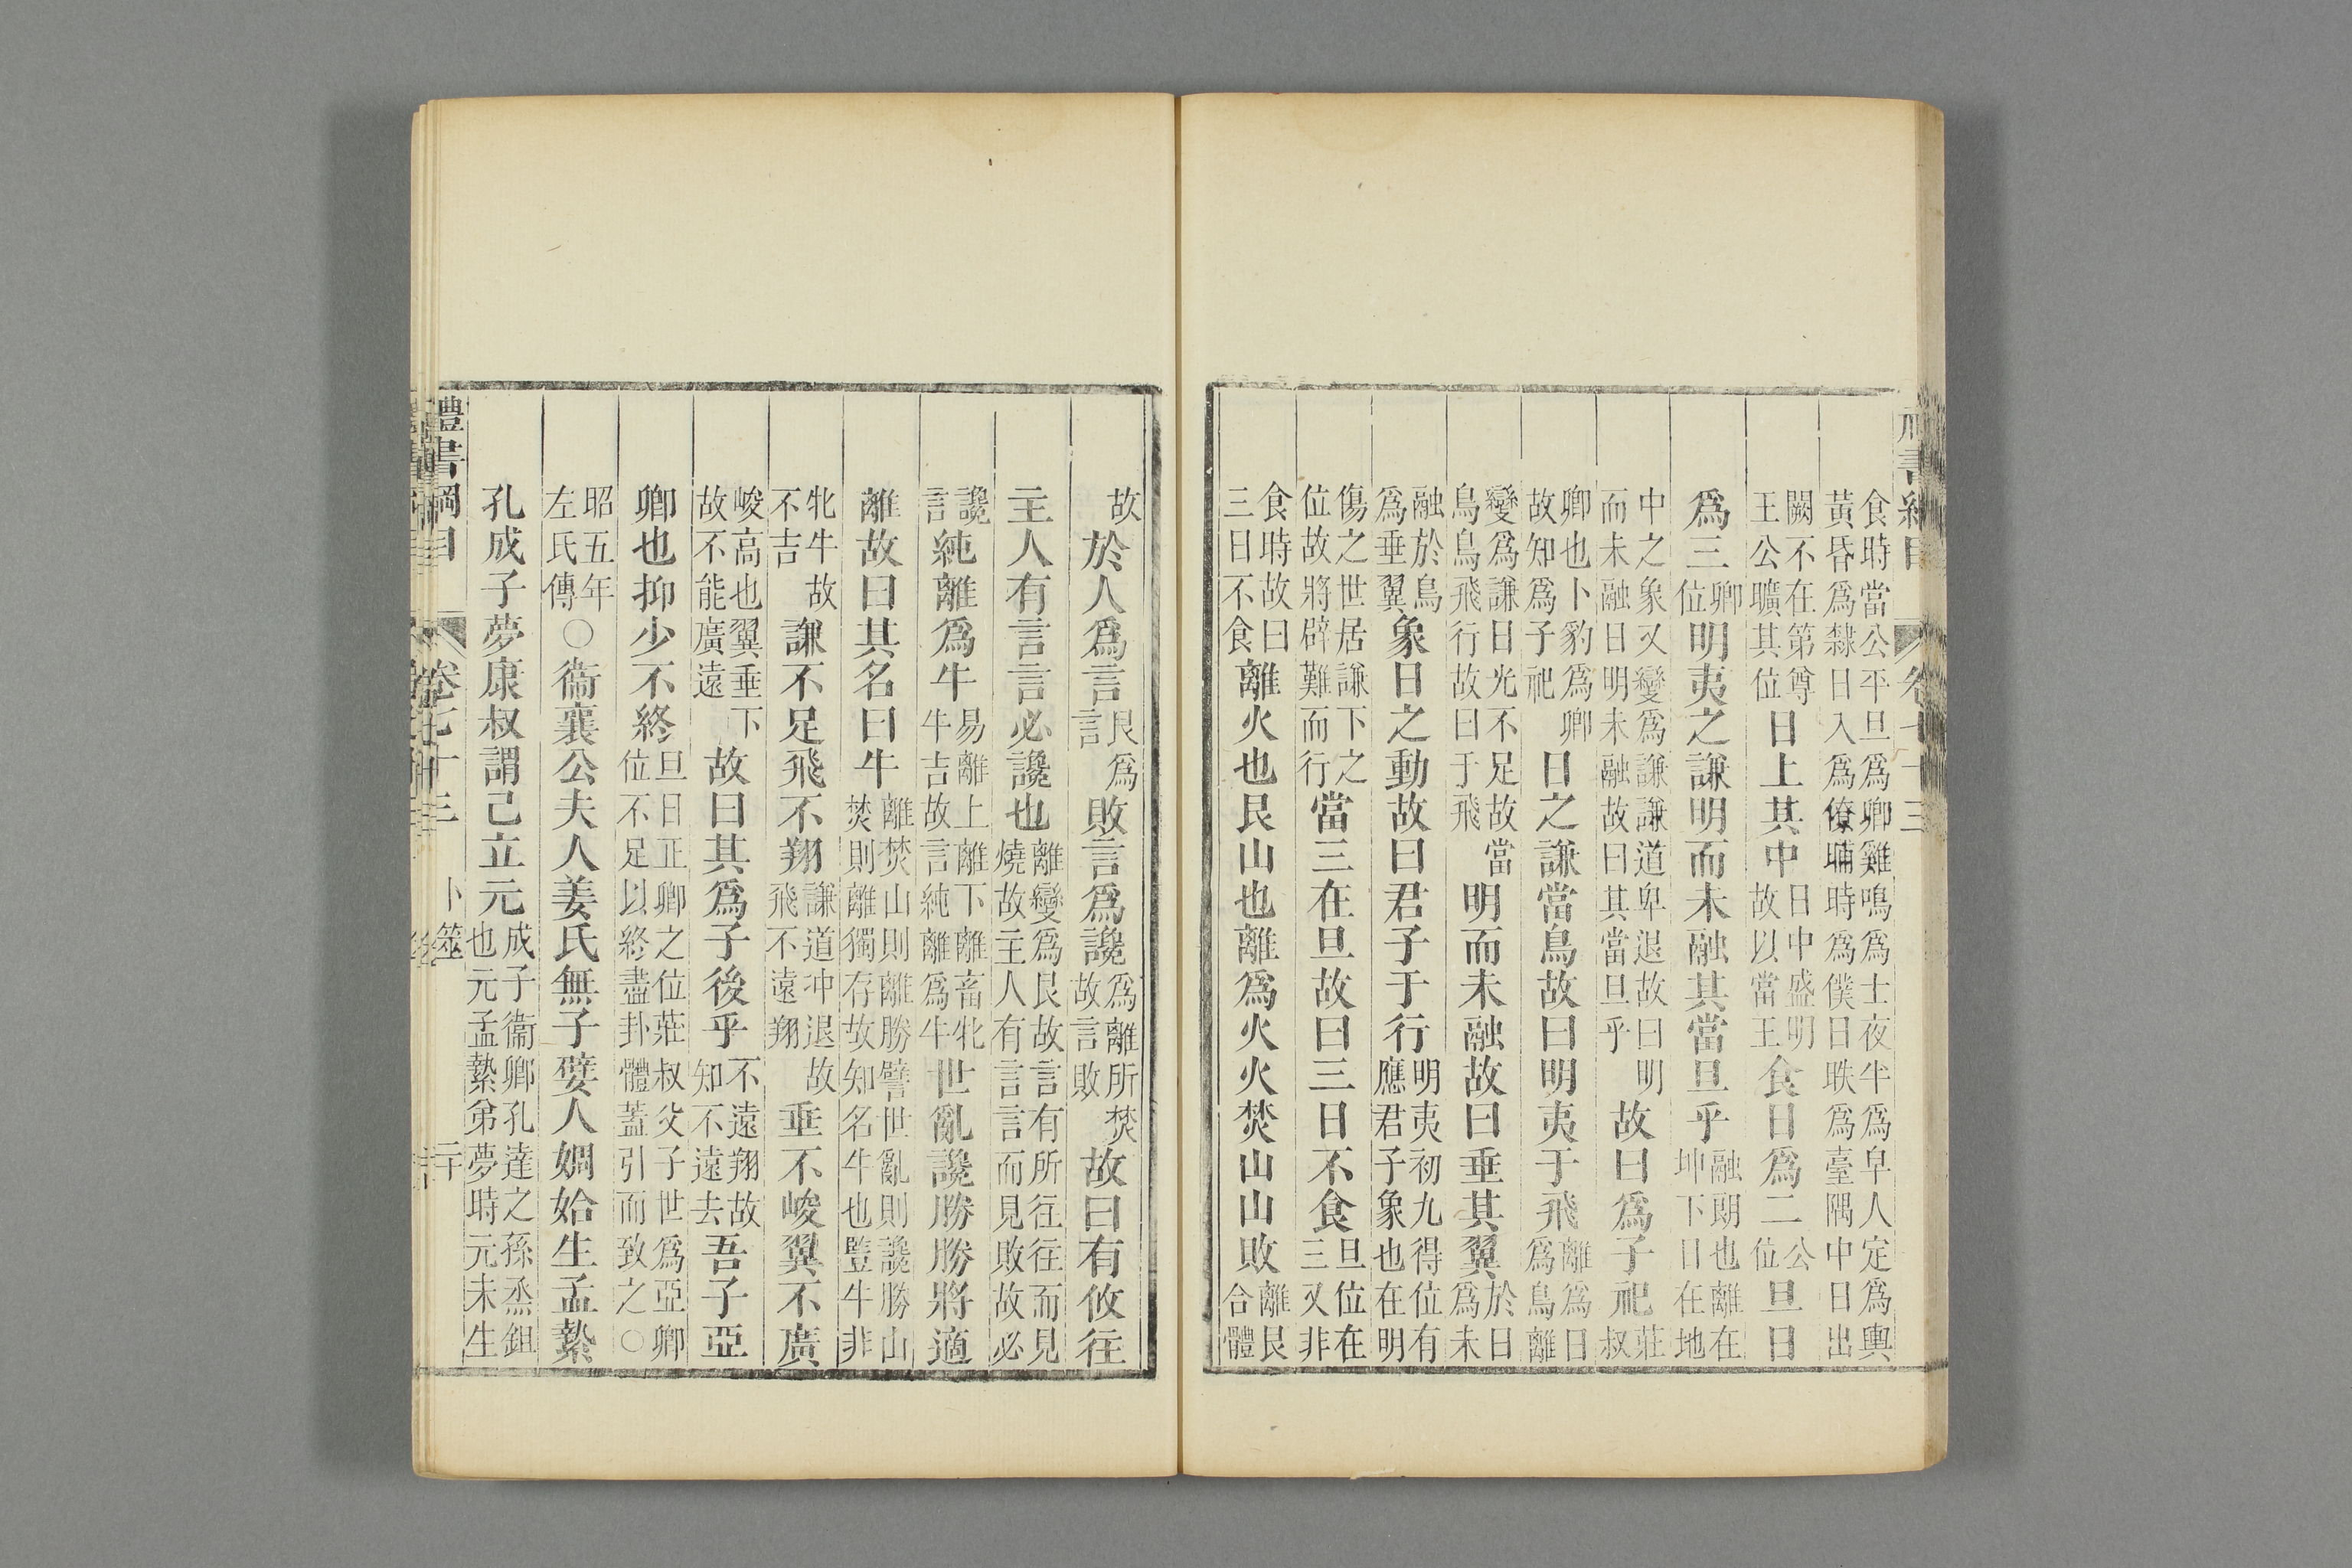 食時當公平旦爲卿雞鳴爲士夜半爲皁人定爲輿黃昏爲隸日入爲僚晡時爲僕日昳爲臺隅中日出
闕不在第尊王公曠其位日上其中日中盛明故以當王食日爲二公位旦日
爲三卿位明夷之謙明而未融其當旦乎融朗也離在坤下日在地
中之象又變爲謙謙道卑退故曰明而未融日明未融故曰其當旦乎故曰爲子祀莊叔
卿也卜豹爲卿故知爲子祀日之謙當鳥故曰明夷于飛離爲日爲鳥離
變爲謙日光不足故當鳥鳥飛行故曰于飛明而未融故曰垂其翼於日爲未
融於鳥爲垂翼象日之動故曰君子于行明夷初九得位有應君子象也在明
傷之世居謙下之位故將辟難而行當三在旦故曰三日不食旦位在三又非
食時故曰三日不食離火也艮山也離爲火火焚山山敗離艮合體
故於人爲言艮爲言敗言爲讒爲離所焚故言敗故曰有攸往
主人有言言必讒也離變爲艮故言有所往往而見燒故主人有言言而見敗故必
讒言純離爲牛易離上離下離畜牝牛吉故言純離爲牛世亂讒勝勝將適
離故曰其名曰牛離焚山則離勝譬世亂則讒勝山焚則離獨存故知名牛也豎牛非
牝牛故不吉謙不足飛不翔謙道冲退故飛不遠翔垂不峻翼不廣
峻高也翼垂下故不能廣遠故曰其爲子後乎不遠翔故知不遠去吾子亞
卿也抑少不終旦日正卿之位莊叔父子世爲亞卿位不足以終盡卦體蓋引而致之○
昭五年左氏傳○衞襄公夫人姜氏無子嬖人婤姶生孟縶
孔成子夢康叔謂己立元成子衞卿孔達之孫烝鉏也元孟縶弟夢時元未生
禮書綱目 卷七十三 卜筮 二十